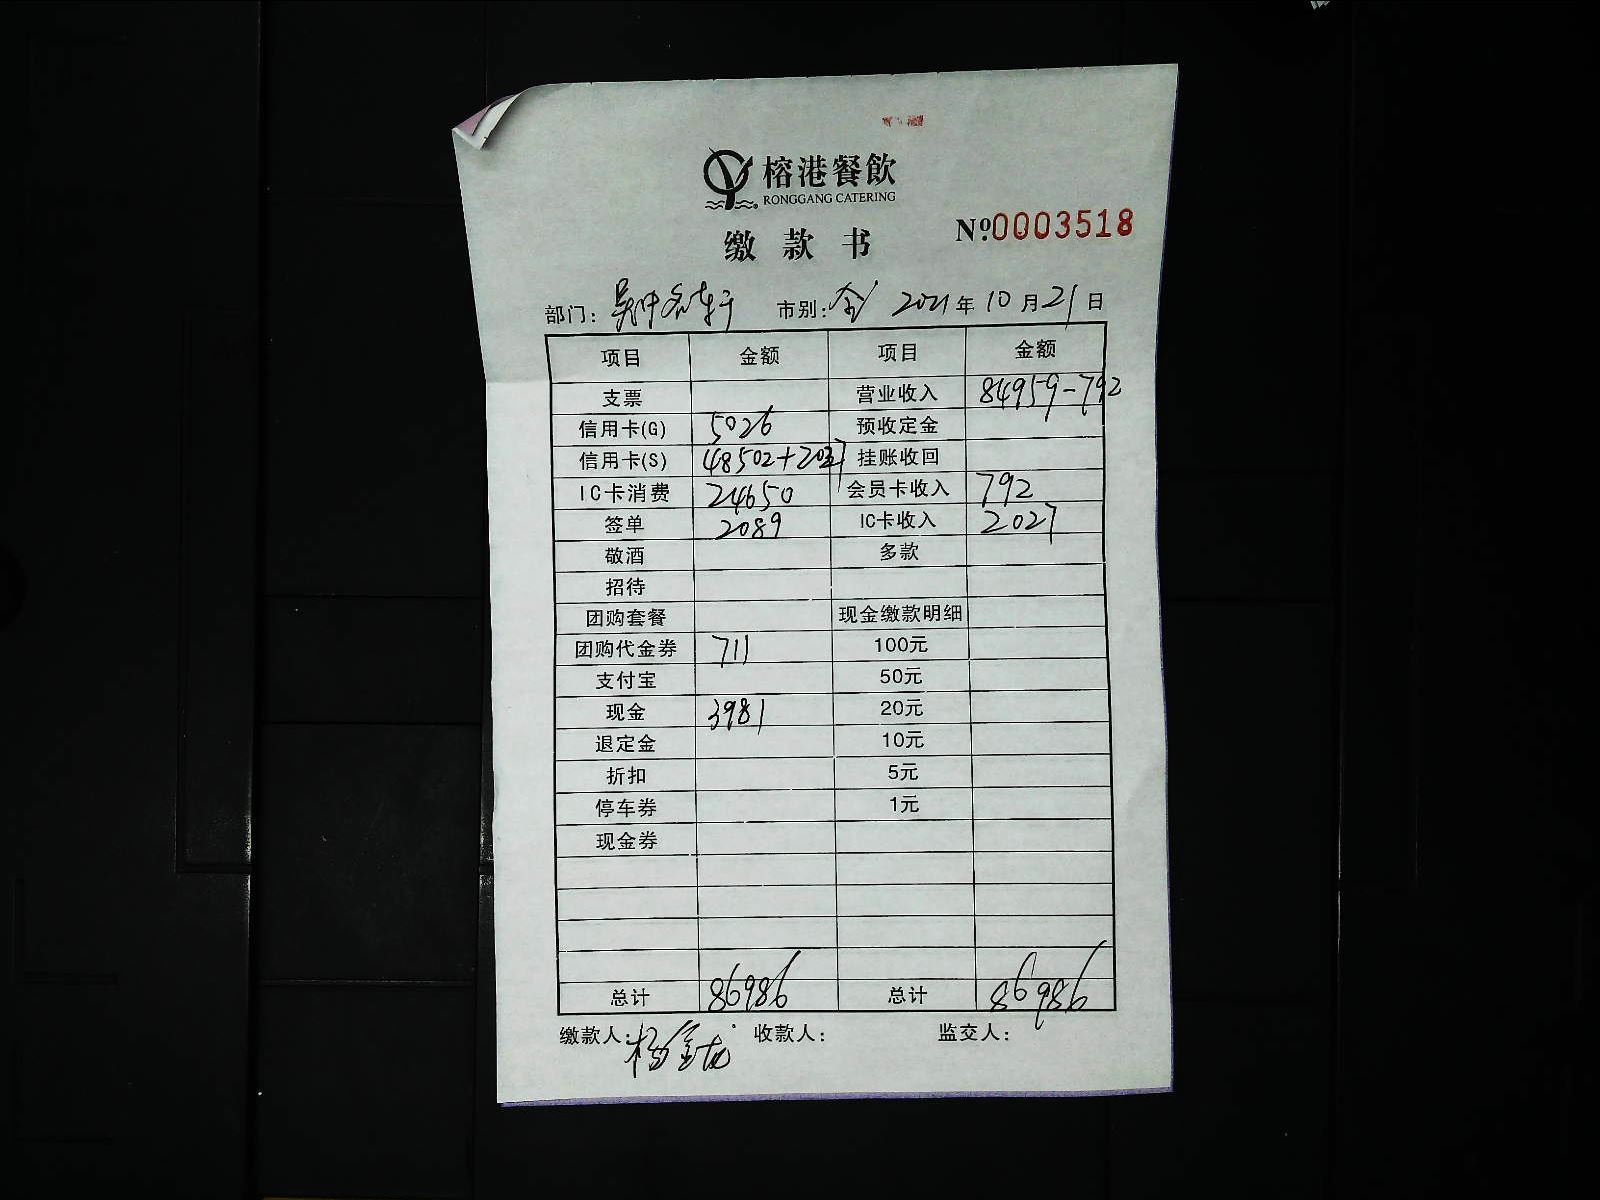 榕港餐飲
RONGGANG CATERING
缴款书
Nº.0003518
部门: 市别:全 2021年10月21日
项目 金额 项目 金额
支票 营业收入 84959-792
信用卡(G) 5026 预收定金
信用卡(S) 48502+2027 挂账收回
IC卡消费 24650 会员卡收入 792
签单 2089 IC卡收入 2027
敬酒 多款
招待
团购套餐 现金缴款明细
团购代金券 711 100元
支付宝 50元
现金 3981 20元
退定金 10元
折扣 5元
停车券 1元
现金券
总计 86986 总计 86986
缴款人:杨金龙 收款人: 监交人: